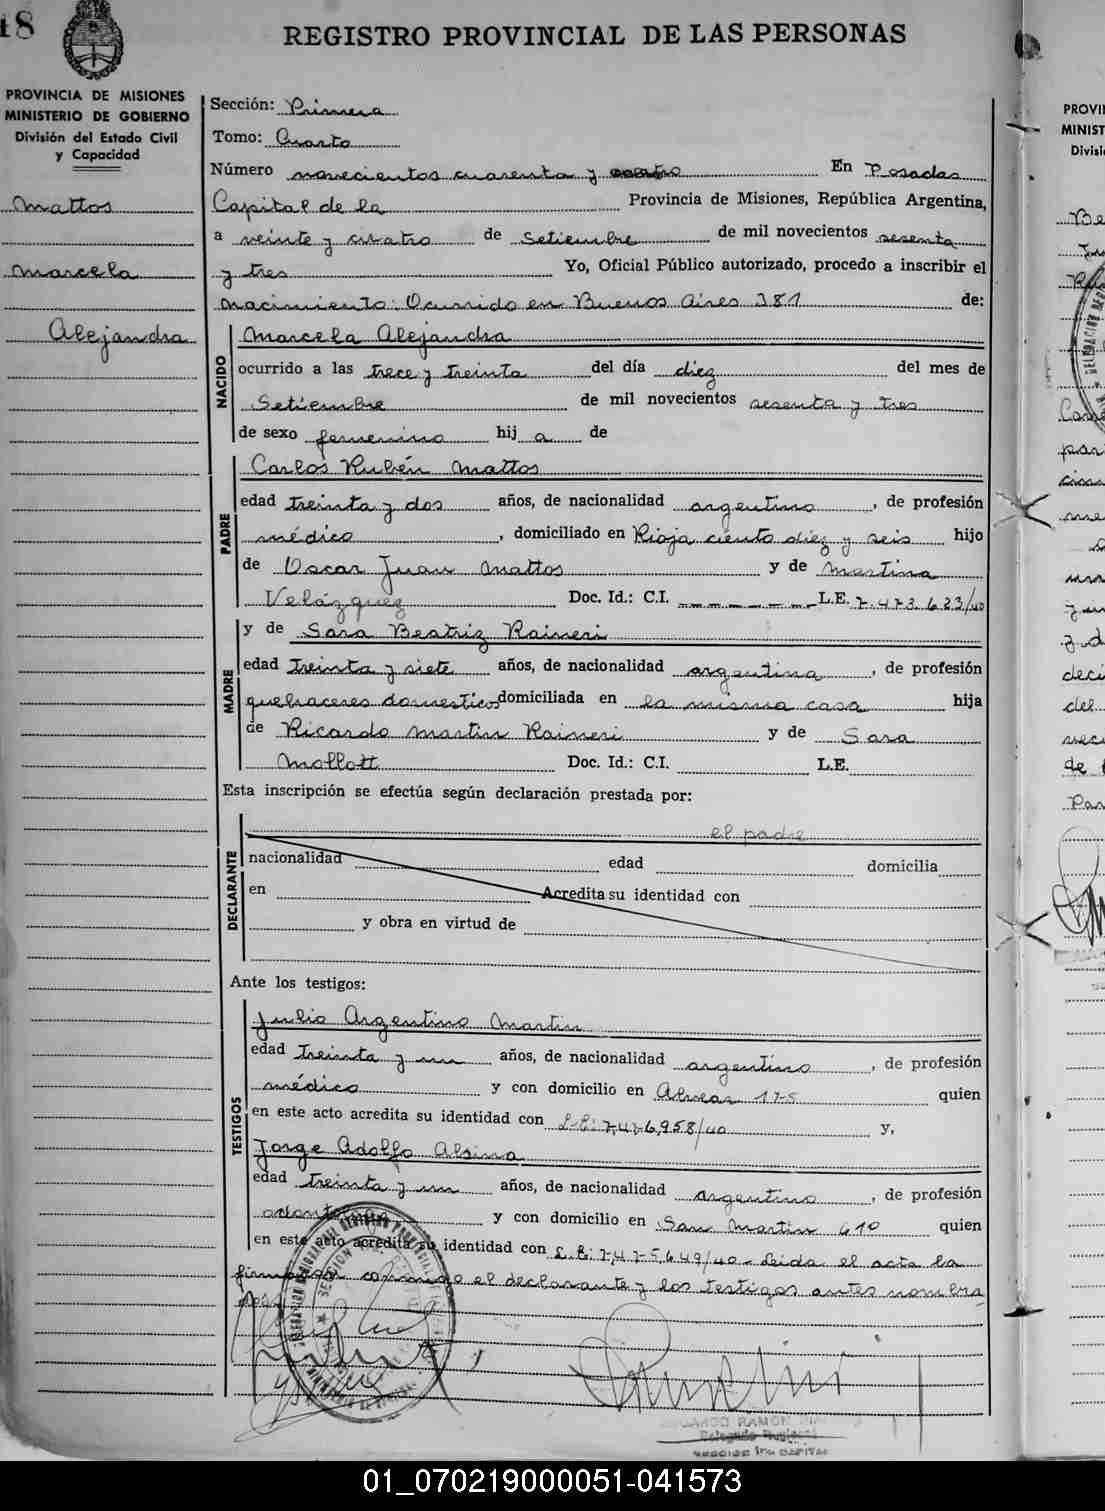 48
REGISTRO PROVINCIAL DE LAS PERSONAS
PROVINCIA DE MISIONES
MINISTERIO DE GOBIERNO
División del Estado Civil
y Capacidad
Mattos
Marcela
Alejandra
Sección: Primera
Tomo: Cuarto
Número novecientos cuarenta y cuatro En Posadas
Capital de la Provincia de Misiones, República Argentina,
a veinte y cuatro de Setiembre de mil novecientos sesenta
y tres Yo, Oficial Público autorizado, procedo a inscribir el
nacimiento: Ocurrido en Buenos Aires 381 de:
NACIDO
Marcela Alejandra
ocurrido a las trece y treinta del día diez del mes de
Setiembre de mil novecientos sesenta y tres
de sexo femenino hij a de
PADRE
Carlos Rubén Mattos
edad treinta y dos años, de nacionalidad argentino, de profesión
médico, domiciliado en Rioja ciento diez y seis hijo
de Oscar Juan Mattos y de Martina
Velázquez Doc. Id.: C.I. L.E. 7.473.623/40
MADRE
y de Sara Beatriz Raineri
edad treinta y siete años, de nacionalidad argentina, de profesión
quehaceres domesticos domiciliada en la misma casa hija
de Ricardo Martin Raineri y de Sara
Mollott Doc. Id.: C.I. L.E.
Esta inscripción se efectúa según declaración prestada por:
DECLARANTE
el padre
nacionalidad edad domicilia
en Acredita su identidad con
y obra en virtud de
Ante los testigos:
TESTIGOS
Julio Argentino Martin
edad treinta y un años, de nacionalidad argentino, de profesión
médico y con domicilio en Alvear 175 quien
en este acto acredita su identidad con L.E: 7.476.958/40 y,
Jorge Adolfo Alsina
edad treinta y un años, de nacionalidad argentino, de profesión
y con domicilio en San Martin 610 quien
en este acto acredita su identidad con L.E: 7.475.649/40 - Leida el acta la
firmaron conmigo el declarante y los testigos antes nombra
dos
RAMON
Delegado Regional
CAPITAL
01_070219000051-041573